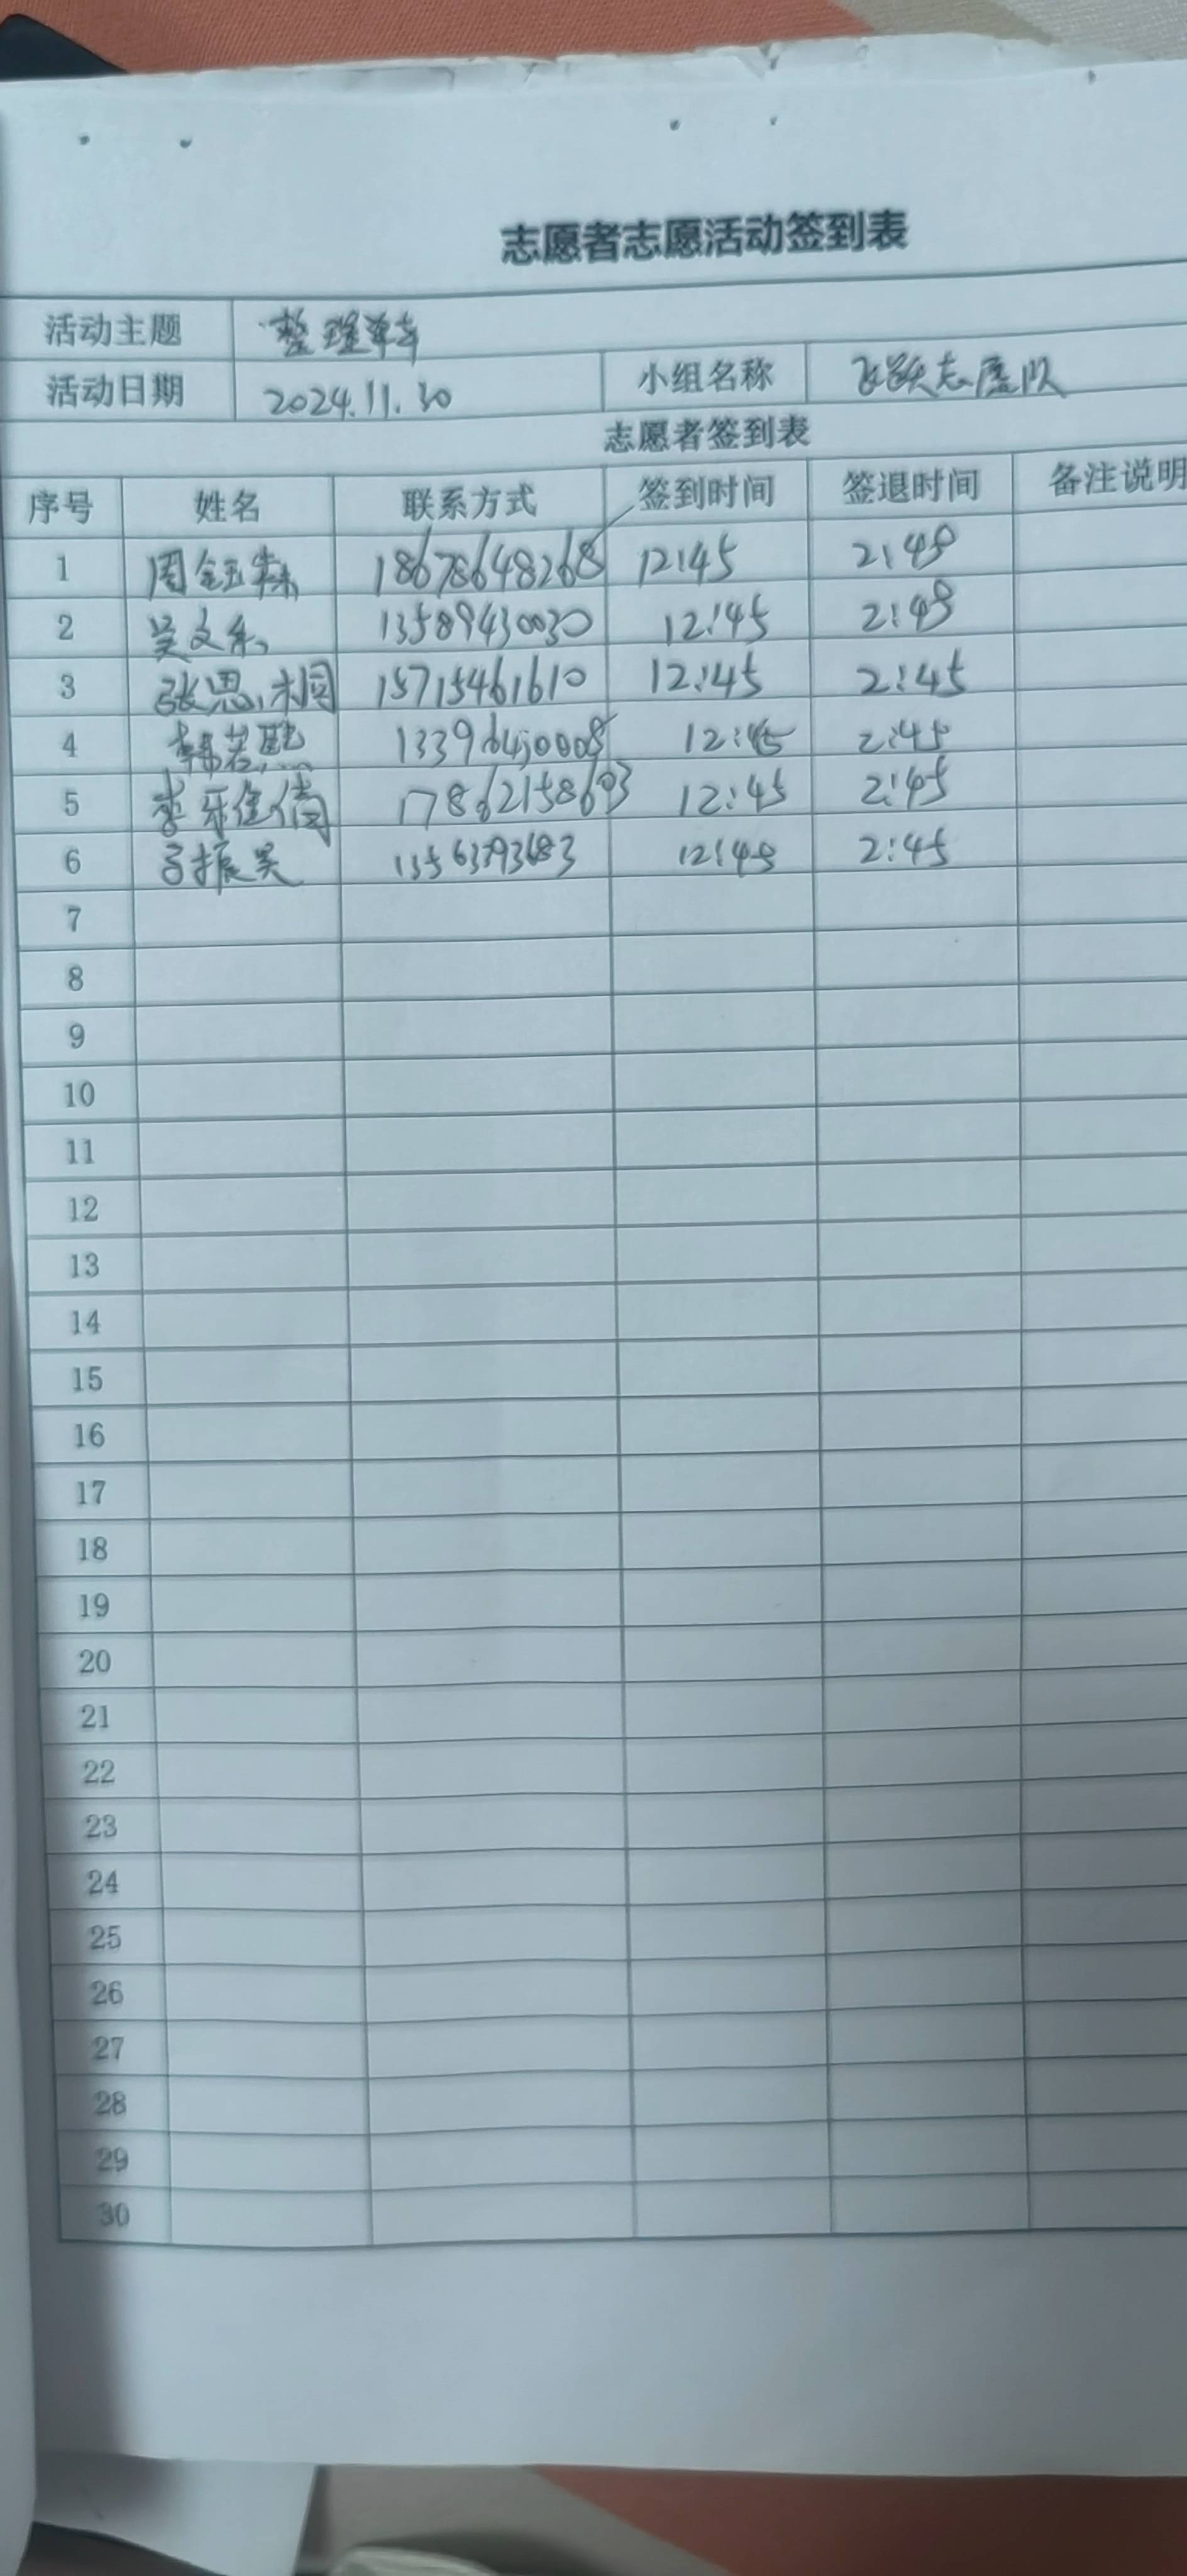 志愿者志愿活动签到表
活动主题 整理单车
活动日期 2024.11.30 小组名称 飞跃志愿队
志愿者签到表
序号 姓名 联系方式 签到时间 签退时间 备注说明
1 周钰 18678648268 12:45 2:45
2 吴文 13589430030 12:45 2:45
3 张思桐 15715461610 12:45 2:45
4 韩若 12:45 2:45
5 李 17862158693 12:45 2:45
6 振昊 12:45 2:45
7
8
9
10
11
12
13
14
15
16
17
18
19
20
21
22
23
24
25
26
27
28
29
30